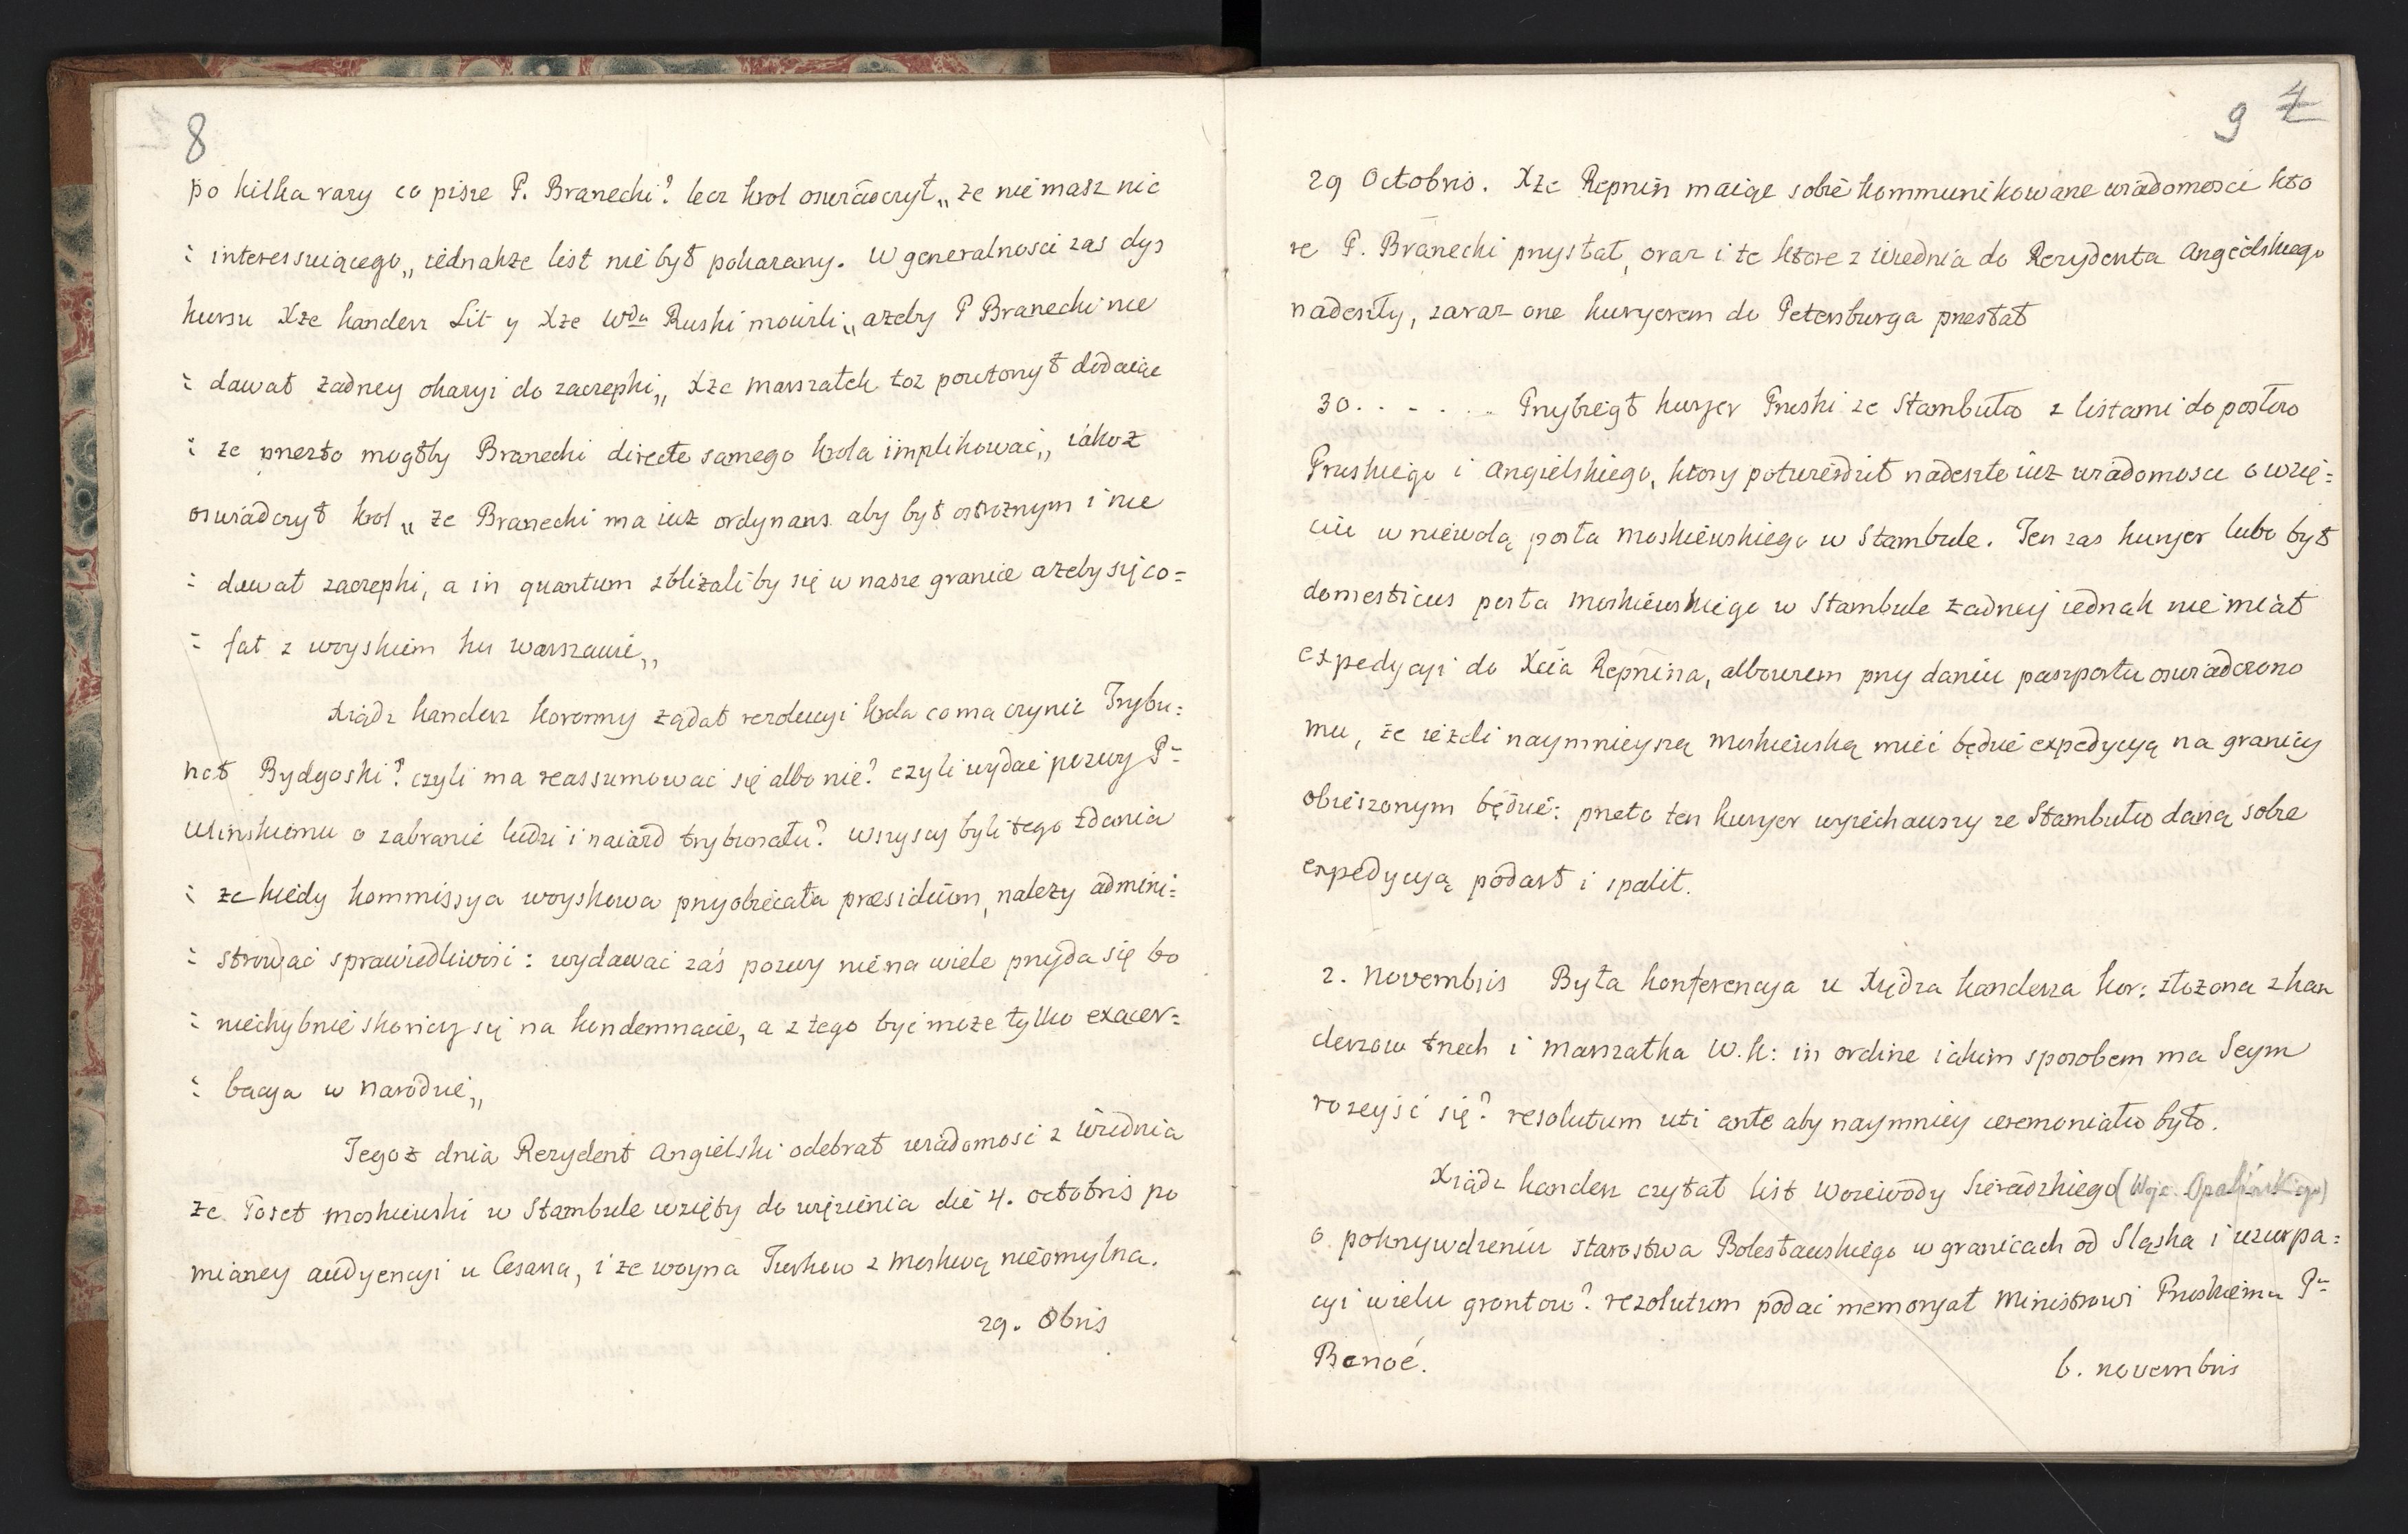 8
po kilka razy co pisze P. Branecki? lecz krol oswiadczył „ ze niemasz nic
: interessuiącego „ iednakze list nie był pokazany. W generalnosci zas dys
kursu Xże kanclerz Lit y Xże Wda Ruski mowili „ azeby P Branecki nie
: dawał żadney okazyi do zaczepki „ Xże marszałek toz powtorzył dodaiąc
: ze przezto mogłby Branecki directe samego krola implikować „ iakoz
oswiadczył krol „ ze Branecki ma iuz ordynans aby był ostroznym i nie
: dawał zaczepki, a in quantum zbliżaliby się w nasze granice azeby się co=
= fał z woyskiem ku warszawie „
Xiądz kanclerz koronny żądał rezolucyi krola co ma czynic Trybu:
nał Bydgoski? czyli ma reassumowac się albo nie? czyli wydac pozwy P=
Ulinskiemu o zabranie ludzi i naiazd trybunału? wszyscy byli tego zdania
: ze kiedy kommissya woyskowa przyobiecała præsidium, nalezy admini:
: strować sprawiedliwość : wydawac zaś pozwy niena wiele przyda się bo
: niechybnie skonczy się na kondemnacie, a z tego być może tylko exacer=
: bacya w narodzie „
Tegoz dnia Rezydent Angielski odebrał wiadomosc z Wiednia
ze Poseł moskiewski w Stambule wzięty do więzienia die 4. octobris po
mianey audyencyi u Cesarza, i ze woyna Turkow z Moskwą nieomylna.
29. 8bris
9 4
29 Octobris. Xże Repnin maiąc sobie kommunikowane wiadomosci kto
re P. Branecki przysłał, oraz i te ktore z Wiednia do Rezydenta Angielskiego
nadeszły, zaraz one kuryerem do Petersburga przesłał
30. . - . . .. Przybiegł kuryer Pruski ze Stambułu z listami do posłow
Pruskiego i Angielskiego, ktory potwierdził nadeszłe iuz wiadomosci o wzię=
ciu w niewolą posła moskiewskiego w Stambule. Ten zas kuryer lubo był
domesticus posła moskiewskiego w Stambule żadney iednak nie miał
expedycyi do Xcia Repnina, albowiem przy daniu paszportu oswiadczono
mu, że ieżeli naymnieyszą moskiewską mieć będzie expedycyą na granicy
obieszonym będzie: przeto ten kuryer wyiechawszy ze Stambułu daną sobie
expedycyą podarł i spalił.
2. Novembris Była konferencya u Xiędza kanclerza kor: złożona z kan
clerzow trzech i marszałka W. K: in ordine iakim sposobem ma Seym
rozeyść się? resolutum uti ante aby naymniey ceremoniału było.
Xiądz kanclerz czytał list Woiewody Sieradzkiego (Woje. Opalińskiego)
o pokrzywdzeniu starostwa Bolesławskiego w granicach od Sląska i uzurpa=
cyi wielu gruntow? rezolutum podać memoryał Ministrowi Pruskiemu P=
Benoé.
6. novembris